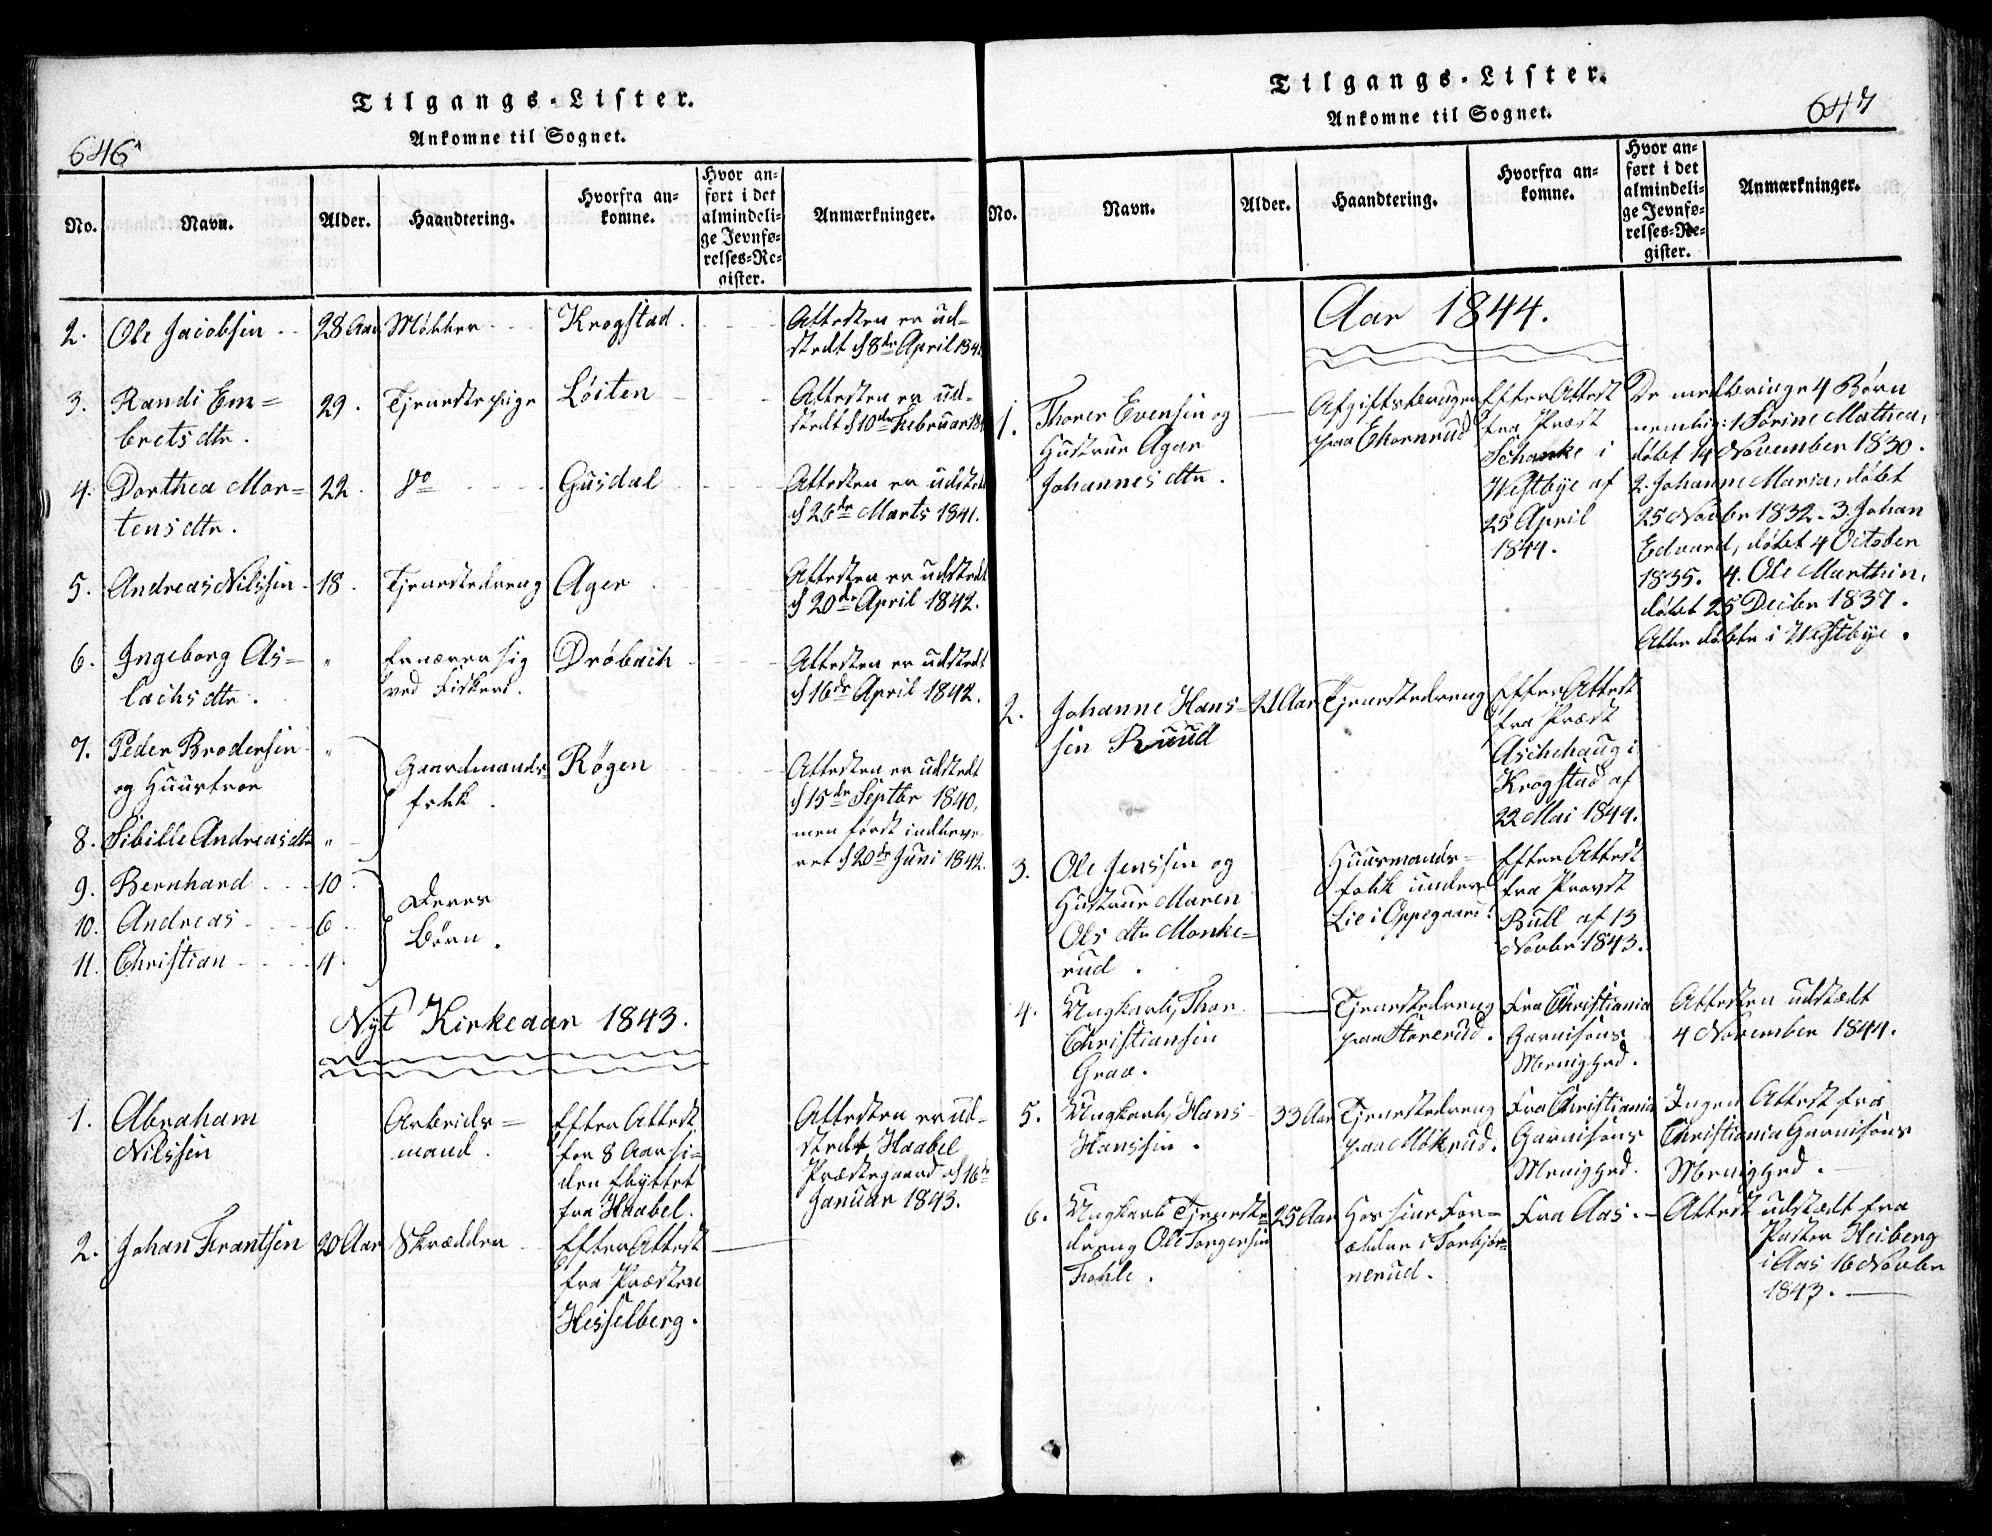 Tilgangs-Lister.
Ankomne til Sognet.
646
No.
Navn.
Alder.
Haandtering.
Hvorfra an-
komne.
Hvor an-
ført i det
almindeli-
ge Jevnfø-
relses-Re-
gister.
Anmærkninger.
2. Ole Jacobsen 28 Aar Møller Krogstad
Attesten er ud-
stedt d 8de April
3. Randi Em-
bretsdtr. 29. Tjenestepige Løiten
Attesten er ud-
stedt d 10de Februar
4. Dorthea Mor-
tensdtr. 22. do Gusdal
Attesten er udstedt
d 26de Marts 1841.
5. Andreas Nilssen 18. Tjenestedreng Ager
Attesten er udstedt
d 20de April 1842.
6. Ingeborg As-
lachsdtr. " ernærer sig
ved Fiskeri. Drøbach
Attesten er udstedt
d 16de April 1842.
7. Peder Brodersen "
og Huustroe
Gaardmands
folk.
Røgen
Attesten er udstedt
d 15de Septbr 1840,
men først indleve-
ret d 20de Juni 1842.
8. Sibille Andreasdtr "
9. Bernhard 10.
10. Andreas 6.
11. Christian 4.
Deres
Børn.
Nyt Kirkeaar 1843.
1. Abraham
Nilssen
Arbeids-
mand.
Efter Attest
for 8 Aar si-
den flyttet
fra Haabel.
Attesten er ud-
stedt Haabel
Præstegaard d 16de
Januar 1843.
2. Johan Frantsen 20 Aar Skrædder
Efter Attest
fra Præsten
Hesselberg.
Tilgangs-Lister.
Ankomne til Sognet.
647
No.
Navn.
Alder.
Haandtering.
Hvorfra an-
komne.
Hvor an-
ført i det
almindeli-
ge Jevnfø-
relses-Re-
gister.
Anmærkninger.
Aar 1844.
1. Thorer Evensen og
Hustrue Agar
Johannesdtr.
Afgiftsbruger
paa Ekornrud
Efter Attest
fra Præst
Schanke i
Westbye af
25 April
1844.
De medbringe 4 Børn
nemlig: 1 Sørine Mathea,
døbt 14 November 1830.
2. Johanne Maria, døbt
25 Novbr 1832. 3. Johan
Edvard, døbt 4 October
1835. 4. Ole Marthin,
døbt 25 Decbr 1837.
Alle døbte i Westbye.
2. Johanne Hans-
sen Ruud
21 Aar Tjenestedreng
Efter Attest
fra Præst
Aschehaug i
Krogstad af
22 Mai 1844.
3. Ole Jenssen og
Hustrue Maren
Ols dtr Monke-
rud.
Huusmands-
folk under
Lie i Oppegaard.
Efter Attest
fra Provst
Bull af 13
Novbr 1843.
4. Ungkarl, Thor
Christiansen
Graa.
Tjenestedreng
paa Storerud.
Fra Christiania
Garnisons
Menighed.
Attesten udstædt
4 November 1844.
5. Ungkarl, Hans
Hanssen.
33 Aar Tjenestedreng
paa Møkrud.
Fra Christiania
Garnisons
Menighed.
Ingen Attest fra
Christiania Garnisons
Menighed.
6. Ungkarl Tjeneste-
dreng Ole Torgersen
Fohle.
25 Aar Hos sine For-
ældre i Torbjør-
nerud.
Fra Aas.
Attest udstædt fra
Pastor Heiberg
i Aas 16 Novbr
1843.